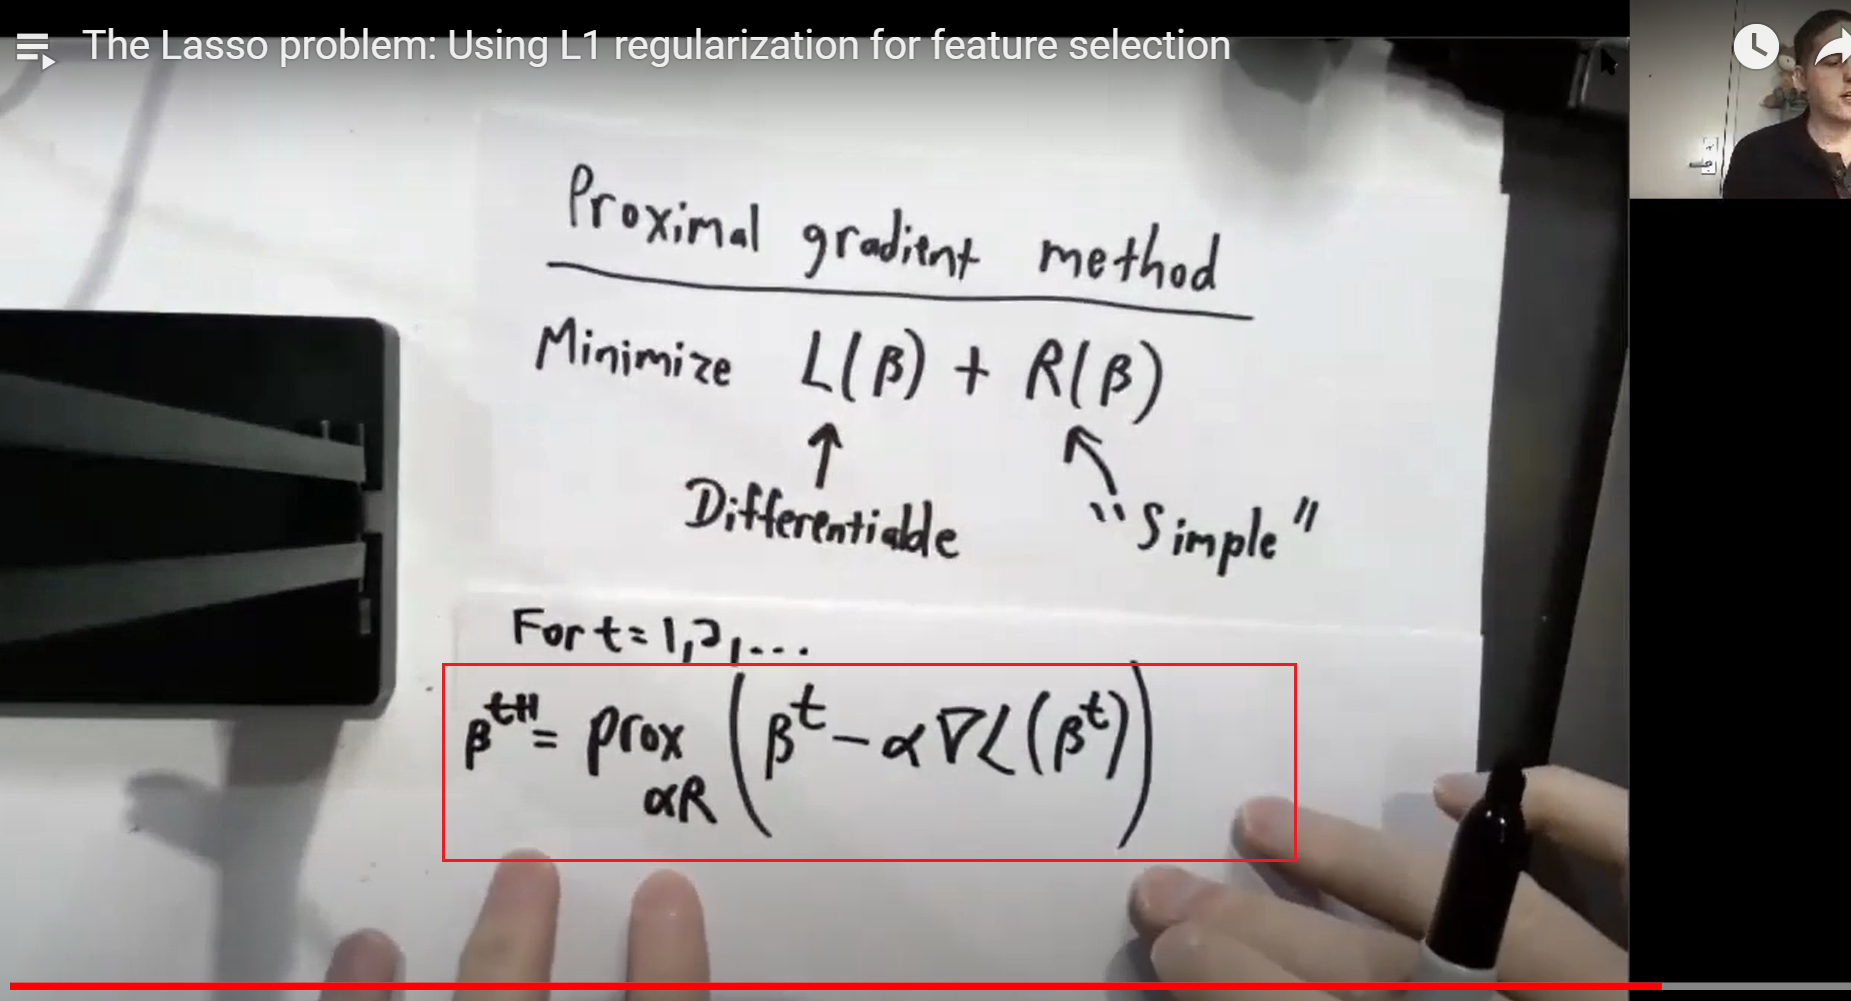 The Lasso problem: Using L1 regularization for feature selection
Proximal gradient method
Minimize L(β) + R(β)
Differentiable
"Simple"
For t = 1, 2, ...
β^{t+1} = prox_{αR} (β^t − α∇L(β^t))